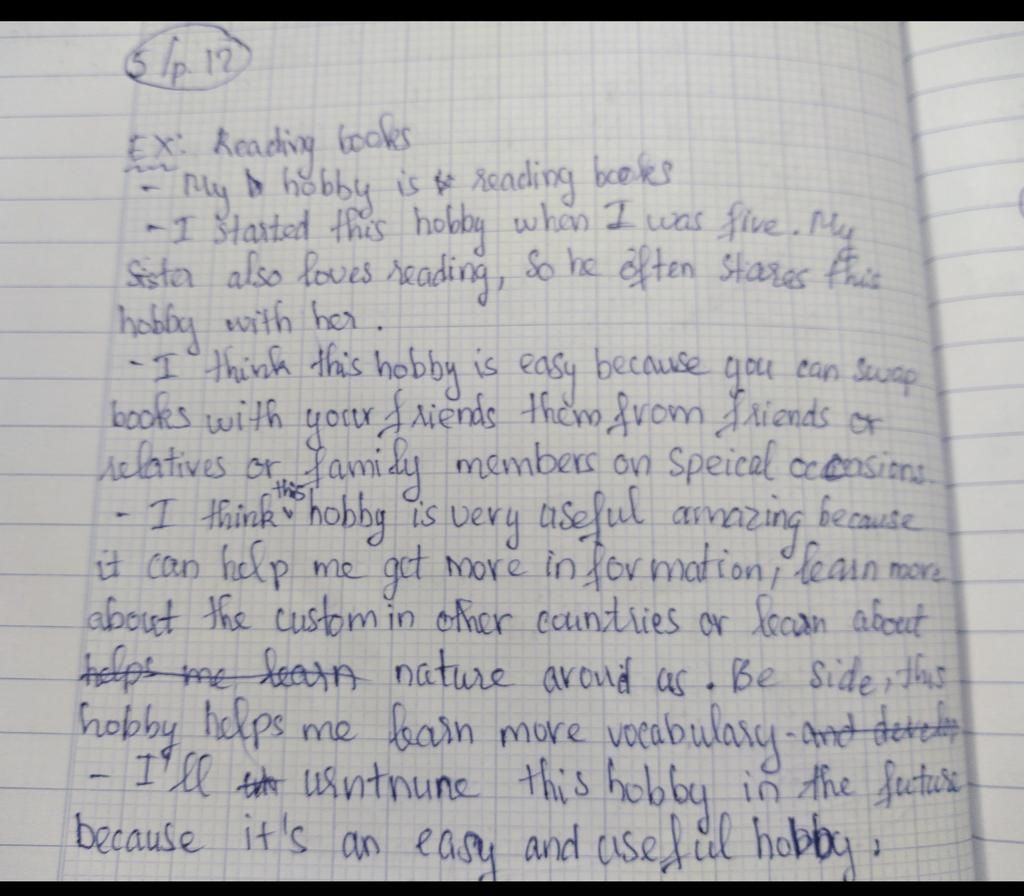 5/p.12
EX: Reading books
- My hobby is reading books
- I started this hobby when I was five. My
sister also loves reading, so he often stares this
hobby with her.
- I think this hobby is easy because you can swap
books with your friends them from friends or
relatives or family members on speical occasions.
- I think this hobby is very useful amazing because
it can help me get more information, learn more
about the custom in other countries or learn about
helps me learn nature aroud us. Be side, this
hobby helps me learn more vocabulary. and develop
- I'll this hobby in the future
because it's an easy and useful hobby.